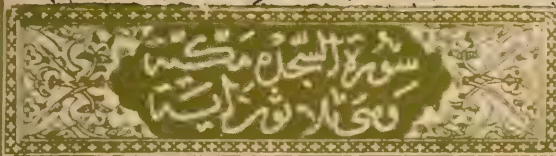 سورة السجدة مكية
وهي ثلاثون آية